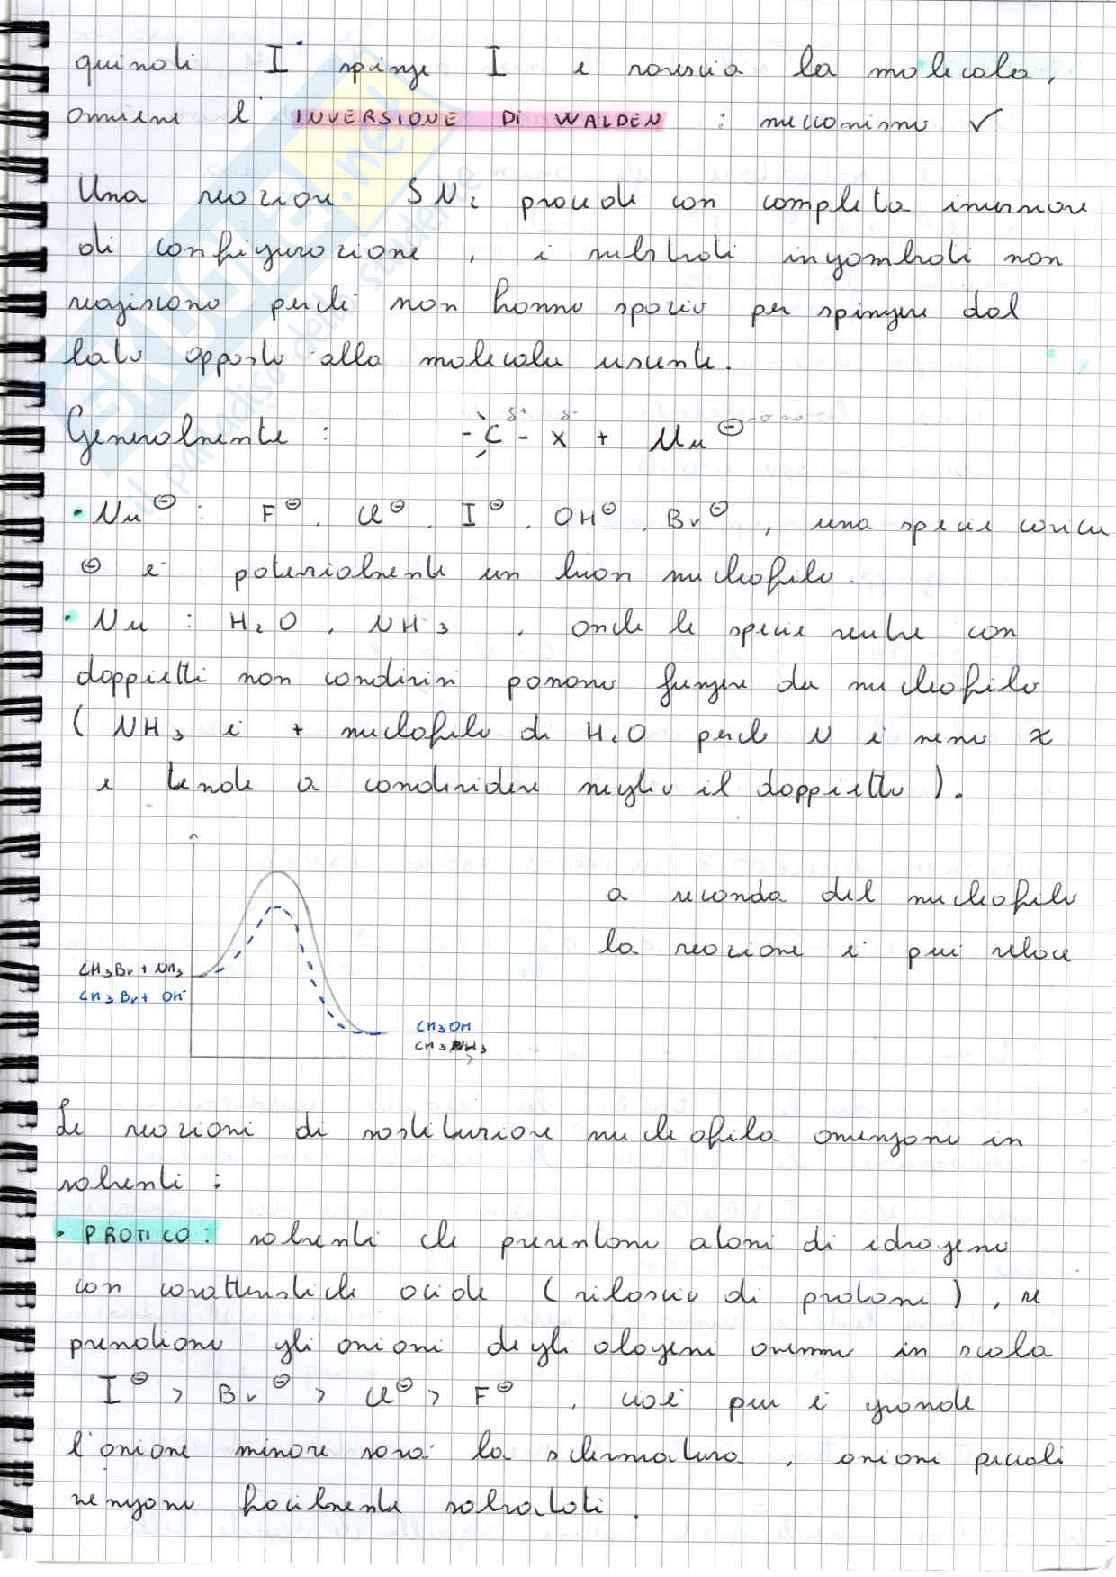 quindi I⁻ spinge I e rovescia la molecola,
avviene l'INVERSIONE DI WALDEN : meccanismo √
Una reazione SN₂ procede con completa inversione
di configurazione, i substrati ingombrati non
reagiscono perché non hanno spazio per spingere dal
lato opposto alla molecola uscente.
Generalmente : -C^δ+ - X^δ- + Nu⊖
• Nu⊖ : F⊖, Cl⊖, I⊖, OH⊖, Br⊖, una specie carica
⊖ è potenzialmente un buon nucleofilo.
• Nu : H₂O, NH₃, anche le specie neutre con
doppietti non condivisi possono fungere da nucleofilo
(NH₃ è + nucleofilo di H₂O perché N è meno χ
e tende a condividere meglio il doppietto).
a seconda del nucleofilo
la reazione è più veloce
CH₃Br + NH₃
CH₃Br + OH⁻
CH₃OH
CH₃NH₃
Le reazioni di sostituzione nucleofila avvengono in
solventi :
• PROTICO: solventi che presentano atomi di idrogeno
con caratteristiche acide (rilascio di protoni), se
prendiamo gli anioni degli alogeni avremo in scala
I⊖ > Br⊖ > Cl⊖ > F⊖, così più è grande
l'anione minore sarà la schermatura, anioni piccoli
vengono facilmente solvatati.